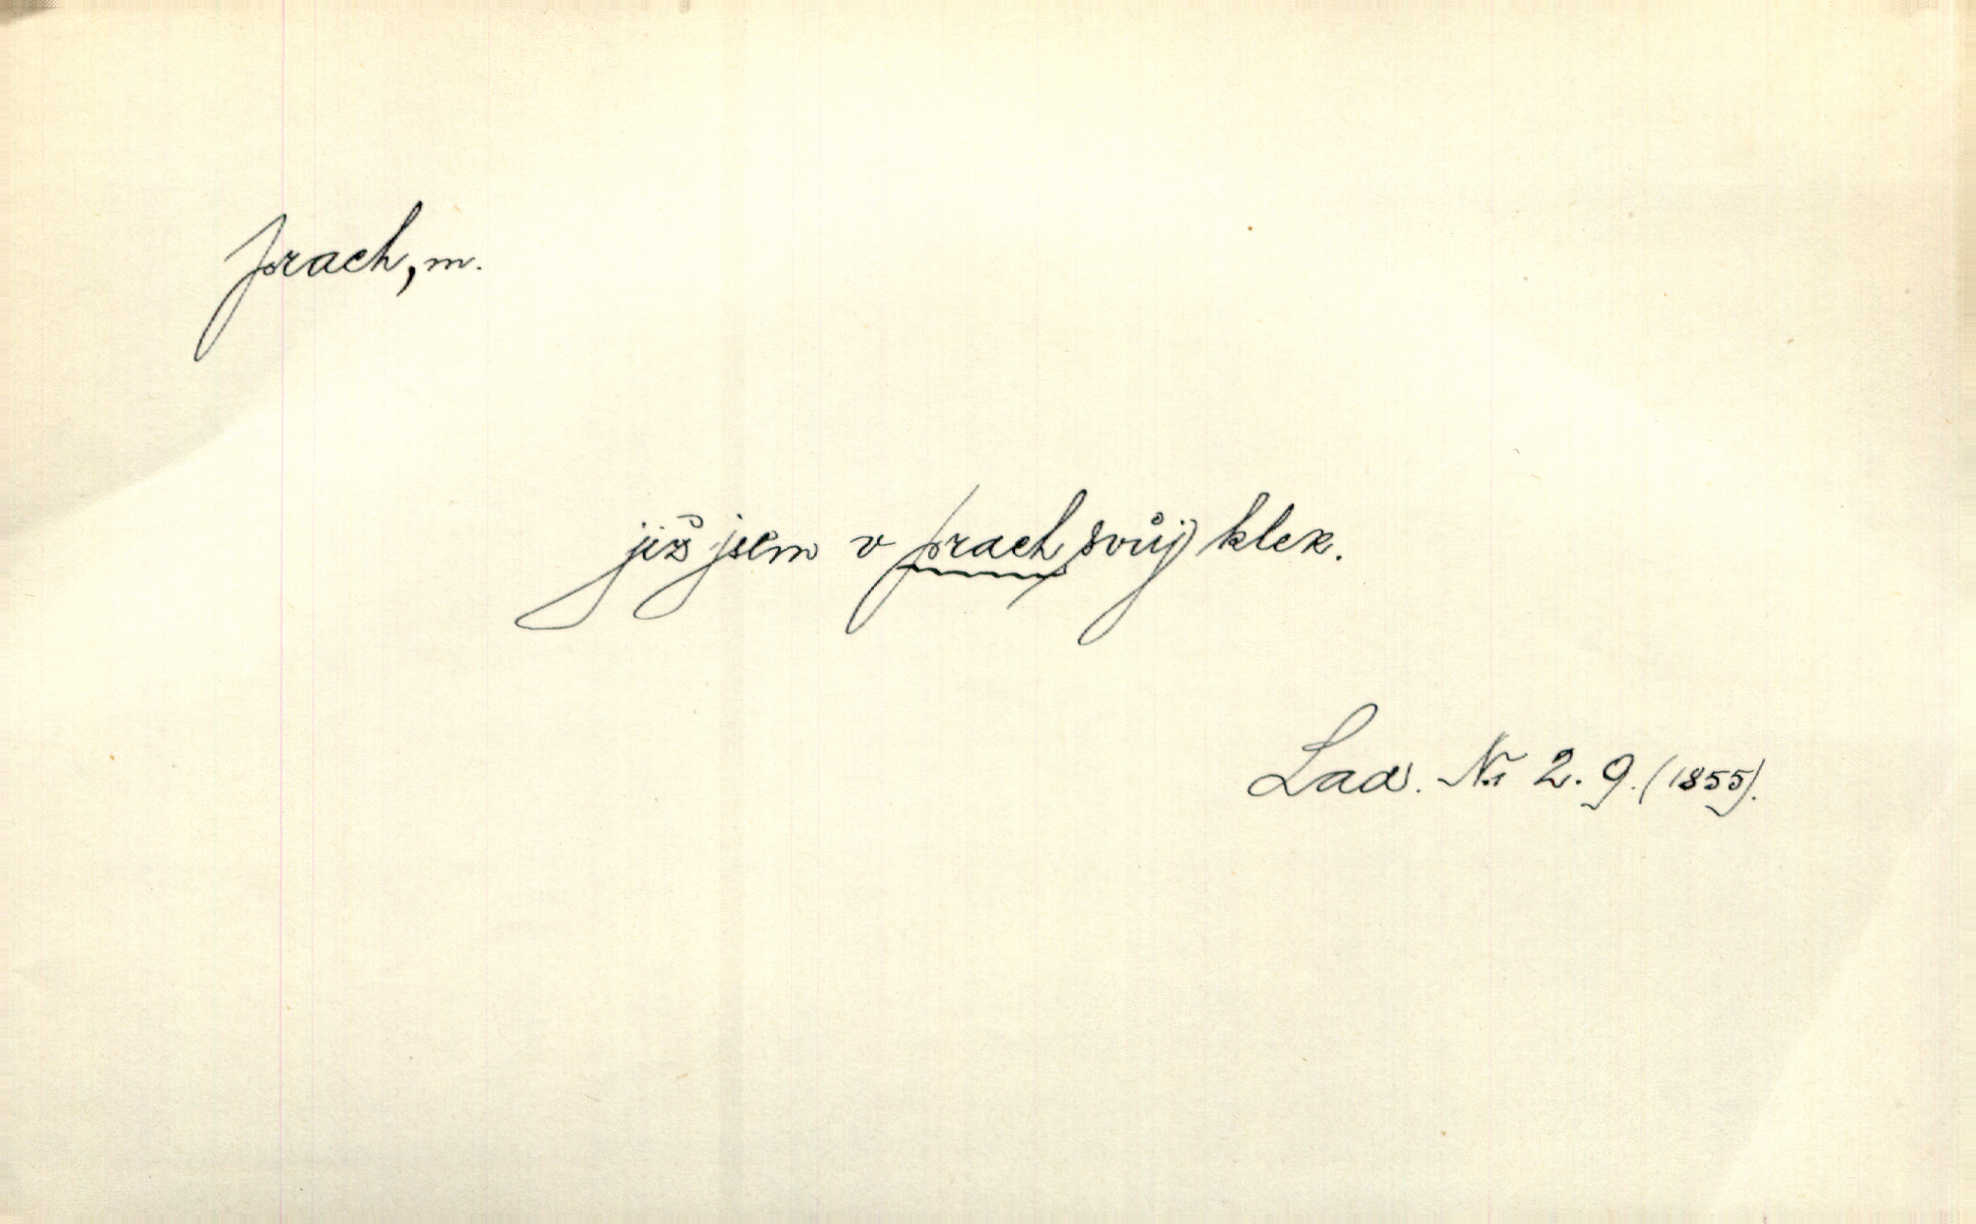 prach, m.
již jsem v prach svůj klek.
Lad. Nr 2. 9. (1855).